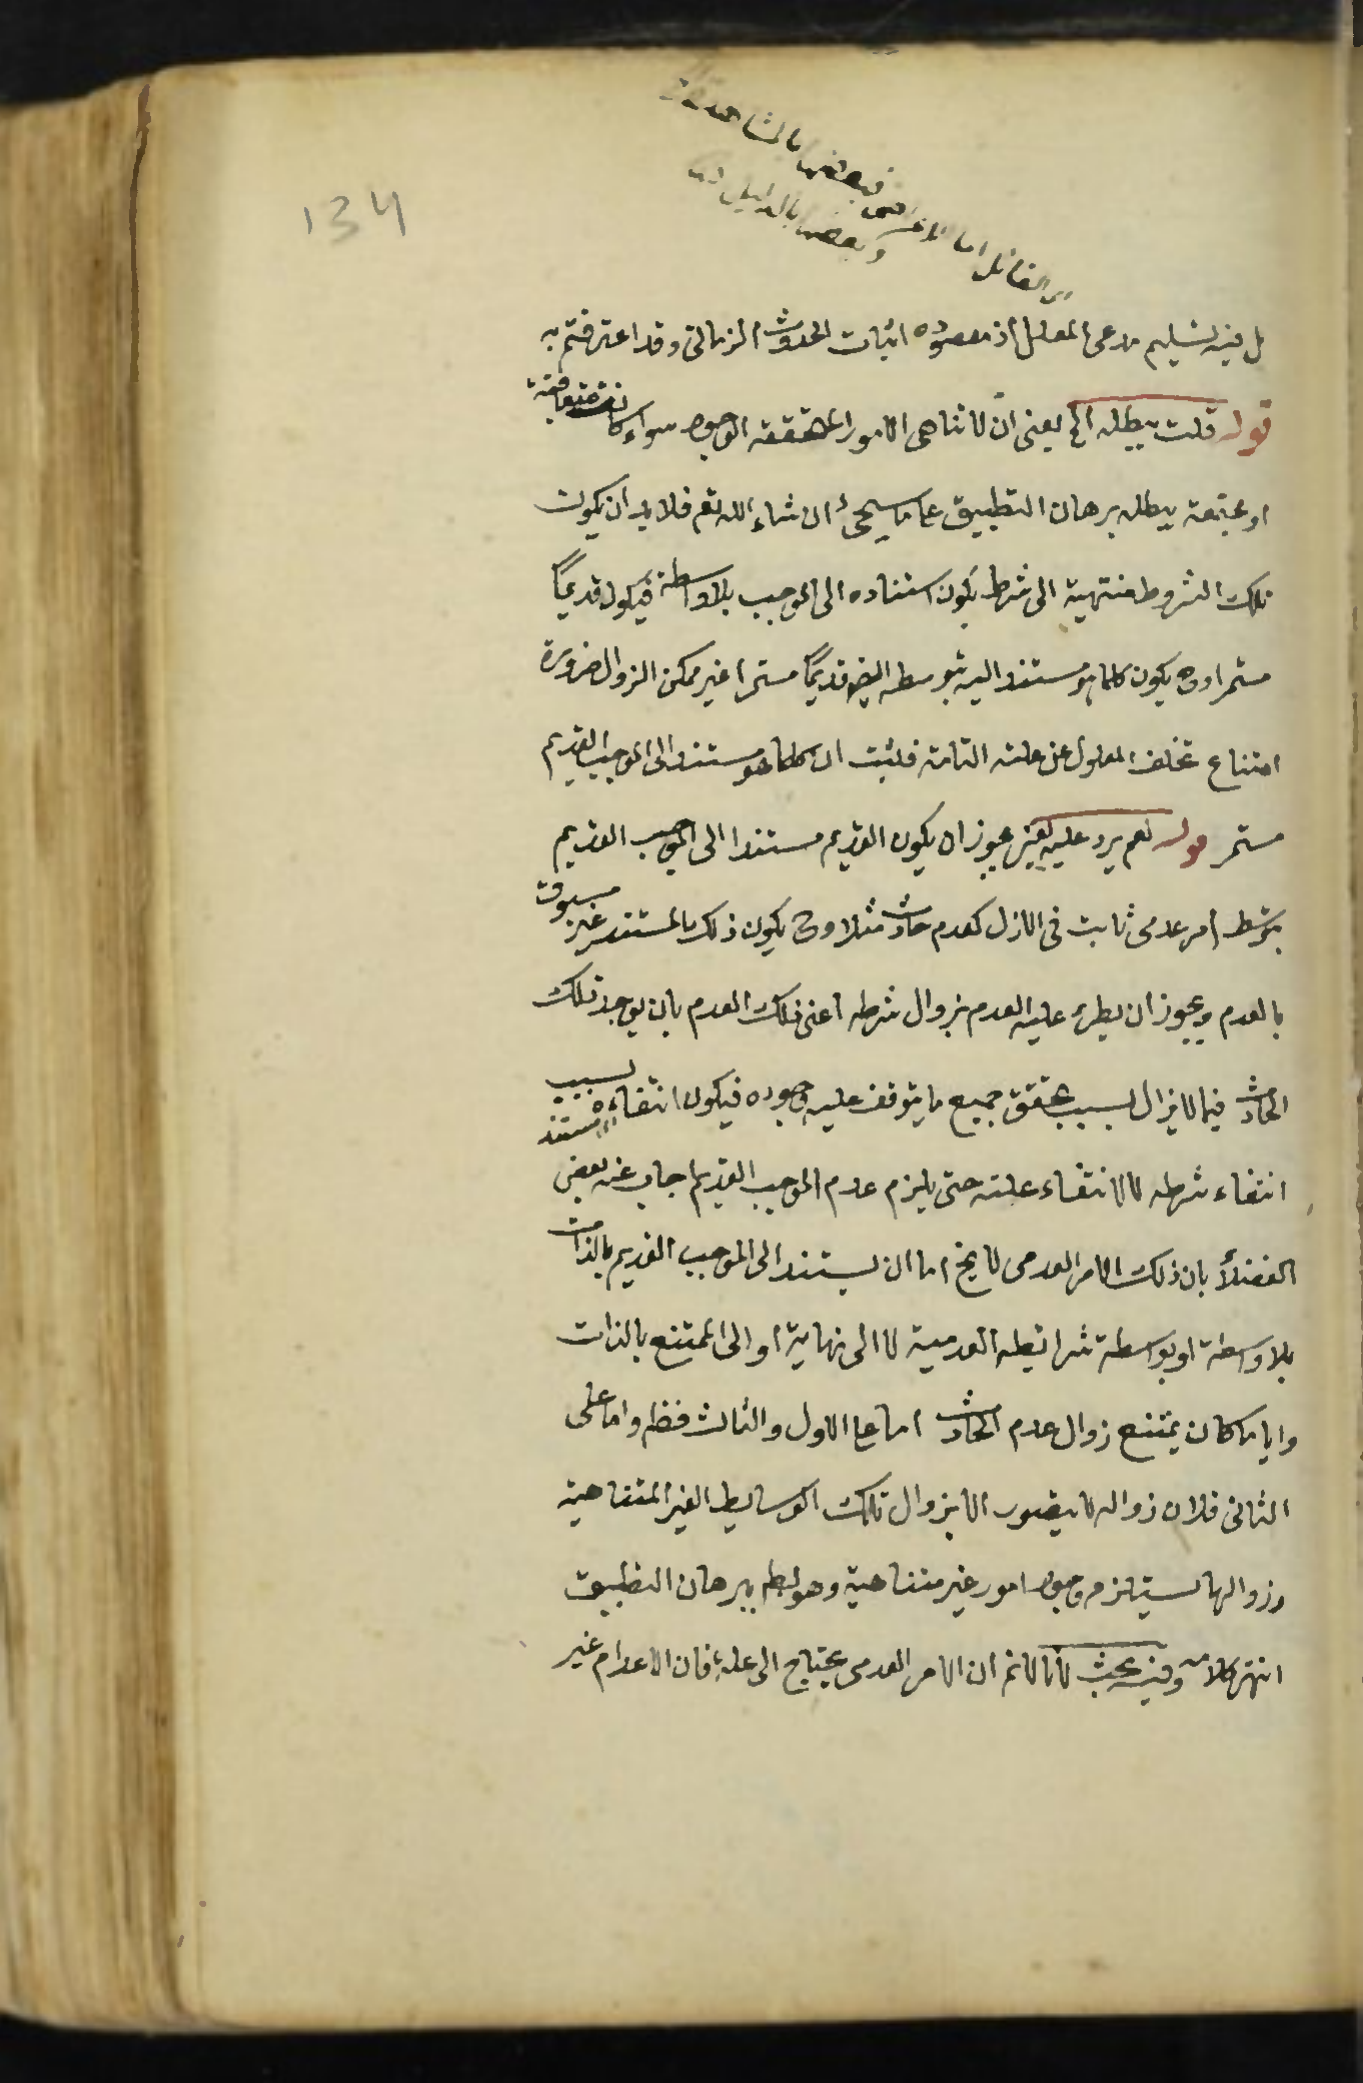 134
قال القائل اما الاعراض فبعضها بالمشاهدة
وبعضها بالدليل
بل فيه تسليم مدعى المعلل اذ مقصوده اثبات الحدوث الزمانى وقد اعترفتم به
قوله قلت يبطله الخ يعنى ان لا تناهى الامور المتحققة الوجود سواء كانت متعاقبة
او مجتمعة يبطله برهان التطبيق على ما سيجئ ان شاء الله تعم فلا بد ان يكون
تلك الشروط منتهية الى شرط يكون استناده الى الموجب بلا واسطة فيكون قديماً
مستمرا وح يكون كلما هو مستند اليه بتوسطه ايض قديماً مستمرا غير ممكن الزوال ضرورة
امتناع تخلف المعلول عن علته التامة فثبت ان كلما هو مستند الى الموجب القديم
مستمر قوله نعم يرد عليه يعنى يجوز ان يكون القديم مستندا الى الموجب القديم
بشرط امر عدمى ثابت فى الازل كعدم حادث مثلا وح يكون ذلك المستند غير مسبوق
بالعدم ويجوز ان يطرء عليه العدم بزوال شرطه اعنى ذلك العدم بان يوجد ذلك
الحادث فيما لا يزال بسبب تحقق جميع ما يتوقف عليه وجوده فيكون انتفاء المستند بسبب
انتفاء شرطه لا لانتفاء علته حتى يلزم عدم الموجب القديم اجاب عنه بعض
الفضلأ بان ذلك الامر العدمى لا يخ اما ان يستند الى الموجب القديم بالذات
بلا واسطة او بواسطة شرائطه العدمية لا الى نهاية او الى الممتنع بالذات
وايا ما كان يمتنع زوال عدم الحادث اما على الاول والثالث فظ واما على
الثانى فلان زواله لا يتصور الا بزوال تلك الوسايط الغير المتناهية
وزوالها يستلزم وجود امور غير متناهية وهو بط ببرهان التطبيق
انتهى كلامه وفيه بحث لانا لا نم ان الامر العدمى يحتاج الى علة فان الاعدام غير